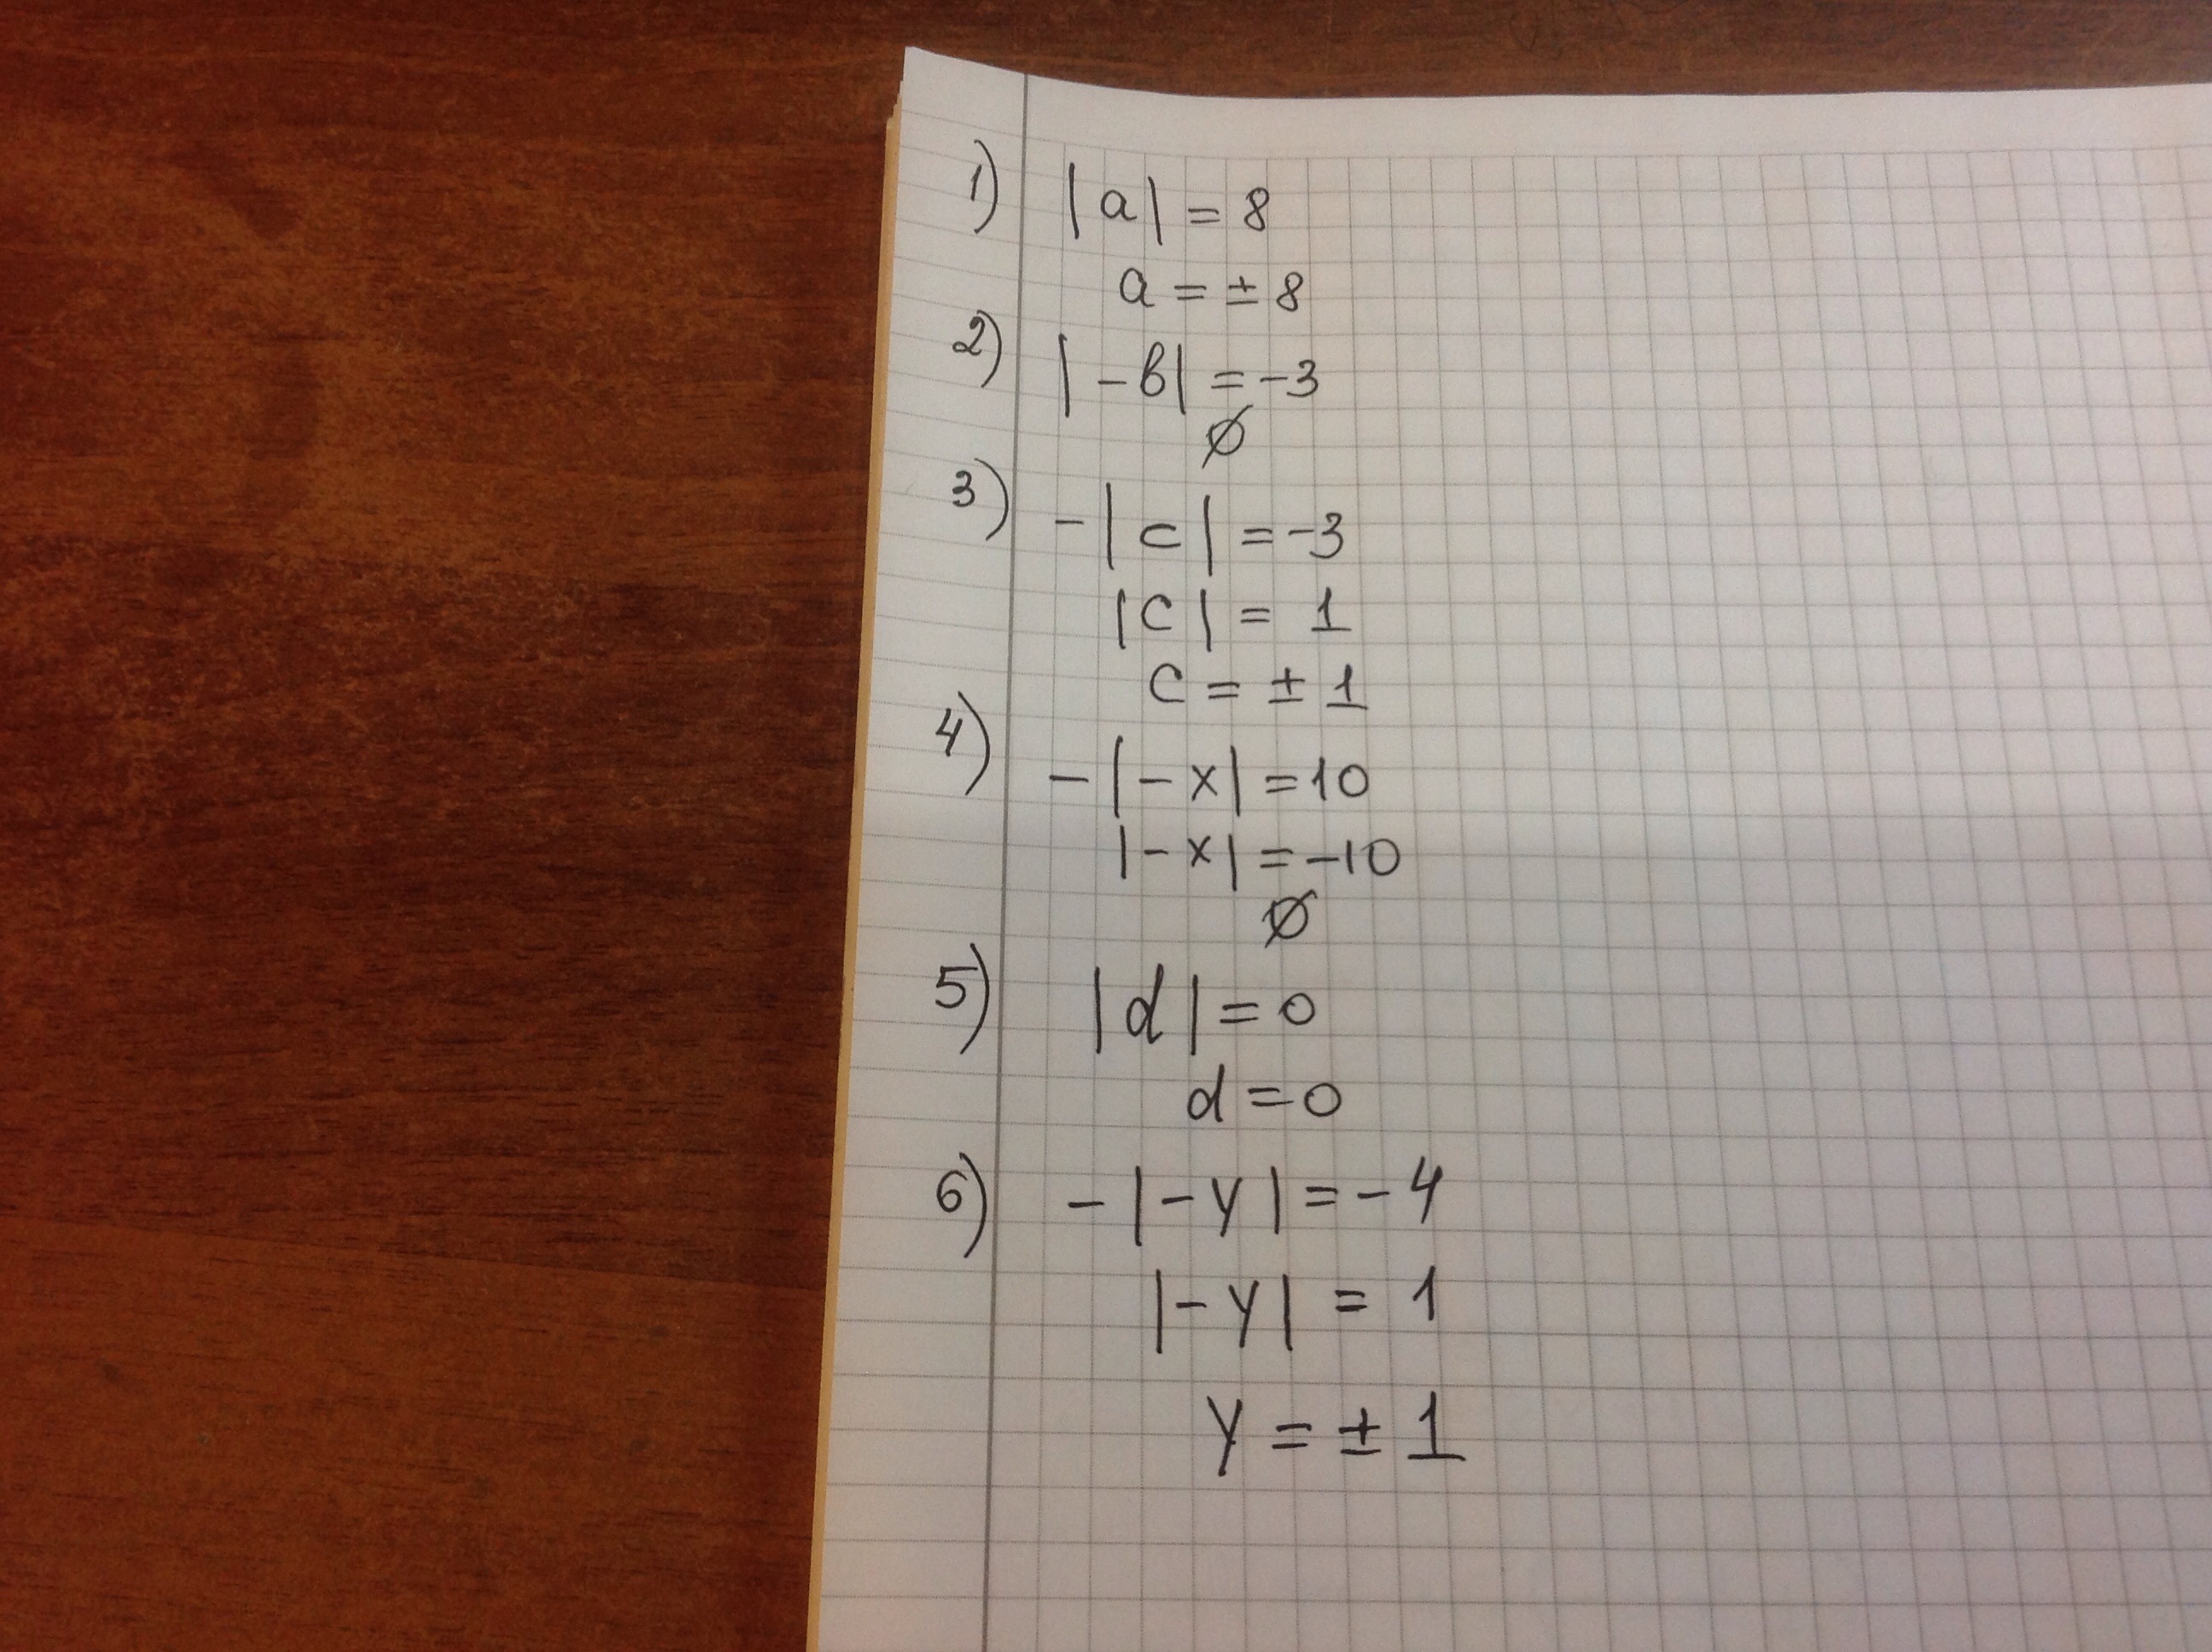 1) |a| = 8
a = ± 8
2) |-в| = -3
∅
3) -|c| = -3
|c| = 1
c = ± 1
4) -|-x| = 10
|-x| = -10
∅
5) |d| = 0
d = 0
6) -|-y| = -4
|-y| = 1
y = ± 1